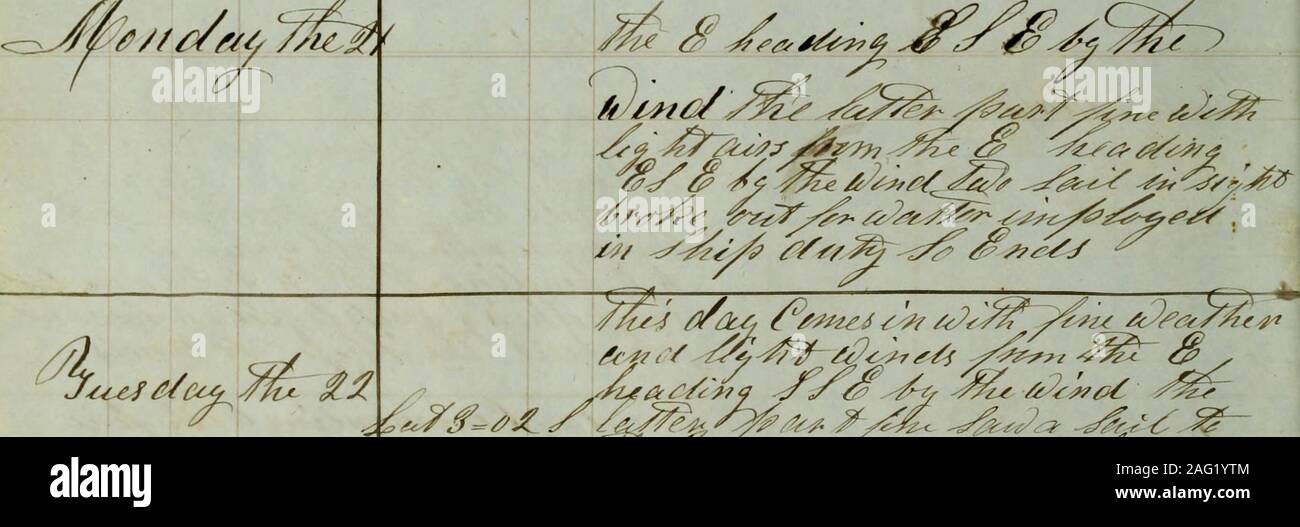 Monday the 21
the E heading E S E by the
wind the latter part fine with
light airs from the E heading
ES E by the wind two sail in sight
broke out for watter imployed
in ship duty So Ends
This day Comes in with fine weather
and light winds from the E
Tuesday the 22
heading S S E by the wind the
Lat 3=02 S
latter part fine saw a sail to
alamy
Image ID: 2AG1YTM
www.alamy.com